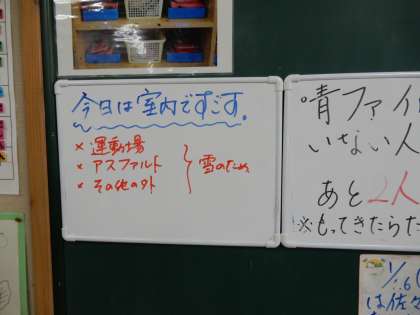 今日は室内ですごす。
× 運動場
× アスファルト
× その他の外
雪のため
青ファイ
いない人
あと2人
※もってきたらた
1/16(
は佐々